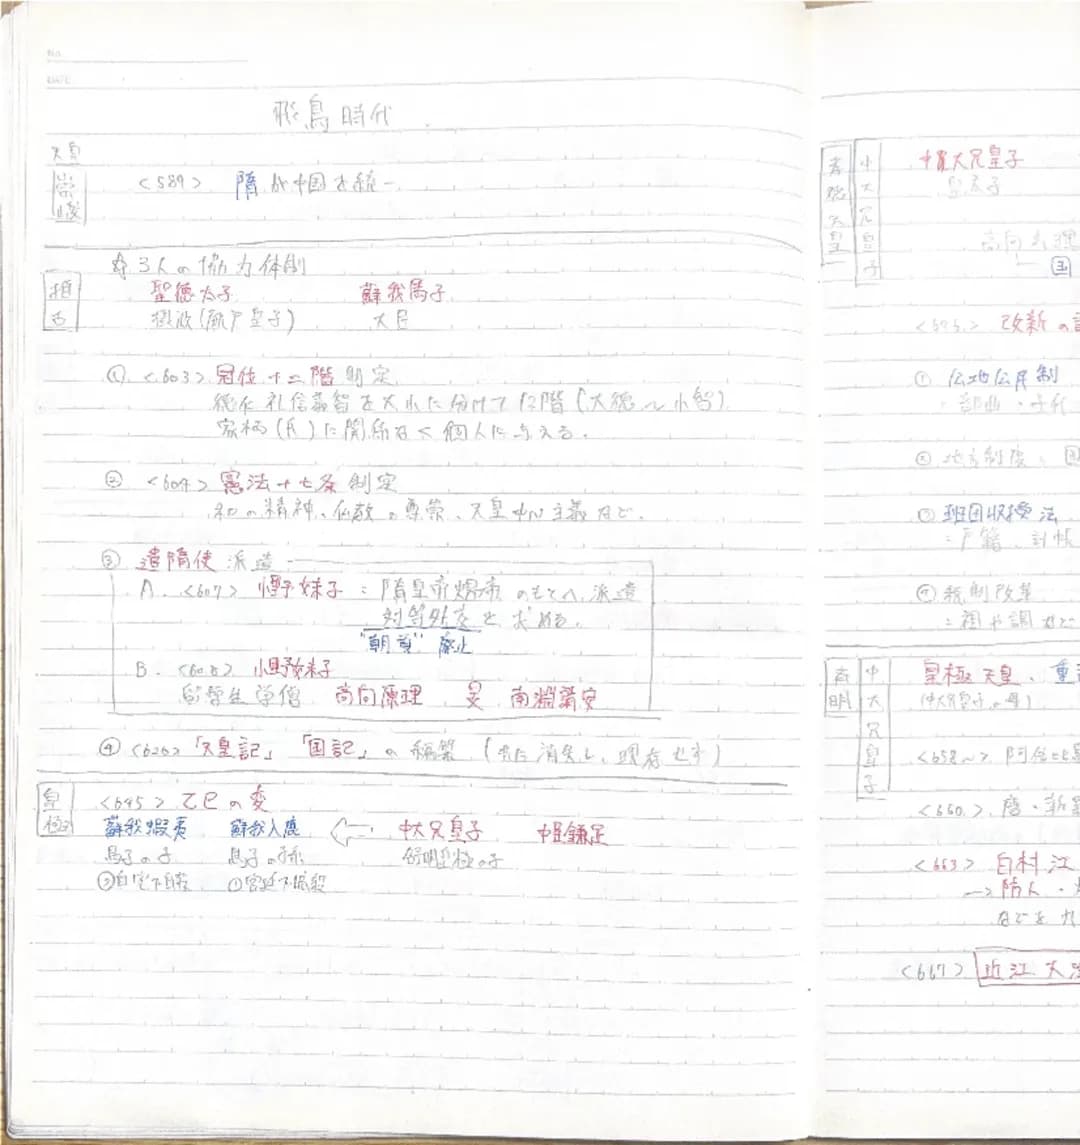 No.
DATE
飛鳥時代
天皇
崇峻
<589> 隋が中国を統一
☆3人の協力体制
推古
聖徳太子 蘇我馬子
摂政(厩戸皇子) 大臣
① <603> 冠位十二階制定
徳仁礼信義智を大小に分けて12階(大徳～小智)
家柄(氏)に関係なく個人に与える。
② <604> 憲法十七条制定
和の精神、仏教の尊崇、天皇中心主義など。
③ 遣隋使派遣
A. <607> 小野妹子:隋皇帝煬帝のもとへ派遣
対等外交を求める。
"朝貢"廃止
B. <608> 小野妹子
留学生学僧 高向玄理 旻 南淵請安
④ <620>「天皇記」「国記」の編纂 (共に消失し、現存せず)
皇極
<645> 乙巳の変
蘇我蝦夷 蘇我入鹿 ⇐ 中大兄皇子 中臣鎌足
馬子の子 馬子の孫 舒明皇極の子
②自宅で自殺 ①宮廷で暗殺
孝徳天皇
中大兄皇子
中大兄皇子
皇太子
高向玄理
国
改新の
① 公地公民制
・部曲・子代
② 地方制度、国
③ 班田収授法
:戸籍、計帳
④ 税制改革
:租や調など
斉明
中大兄皇子
皇極天皇、重
(中大兄皇子の母)
<658～> 阿倍比羅
<660> 唐・新羅
<663> 白村江
→防人・
などを
<667> 近江大